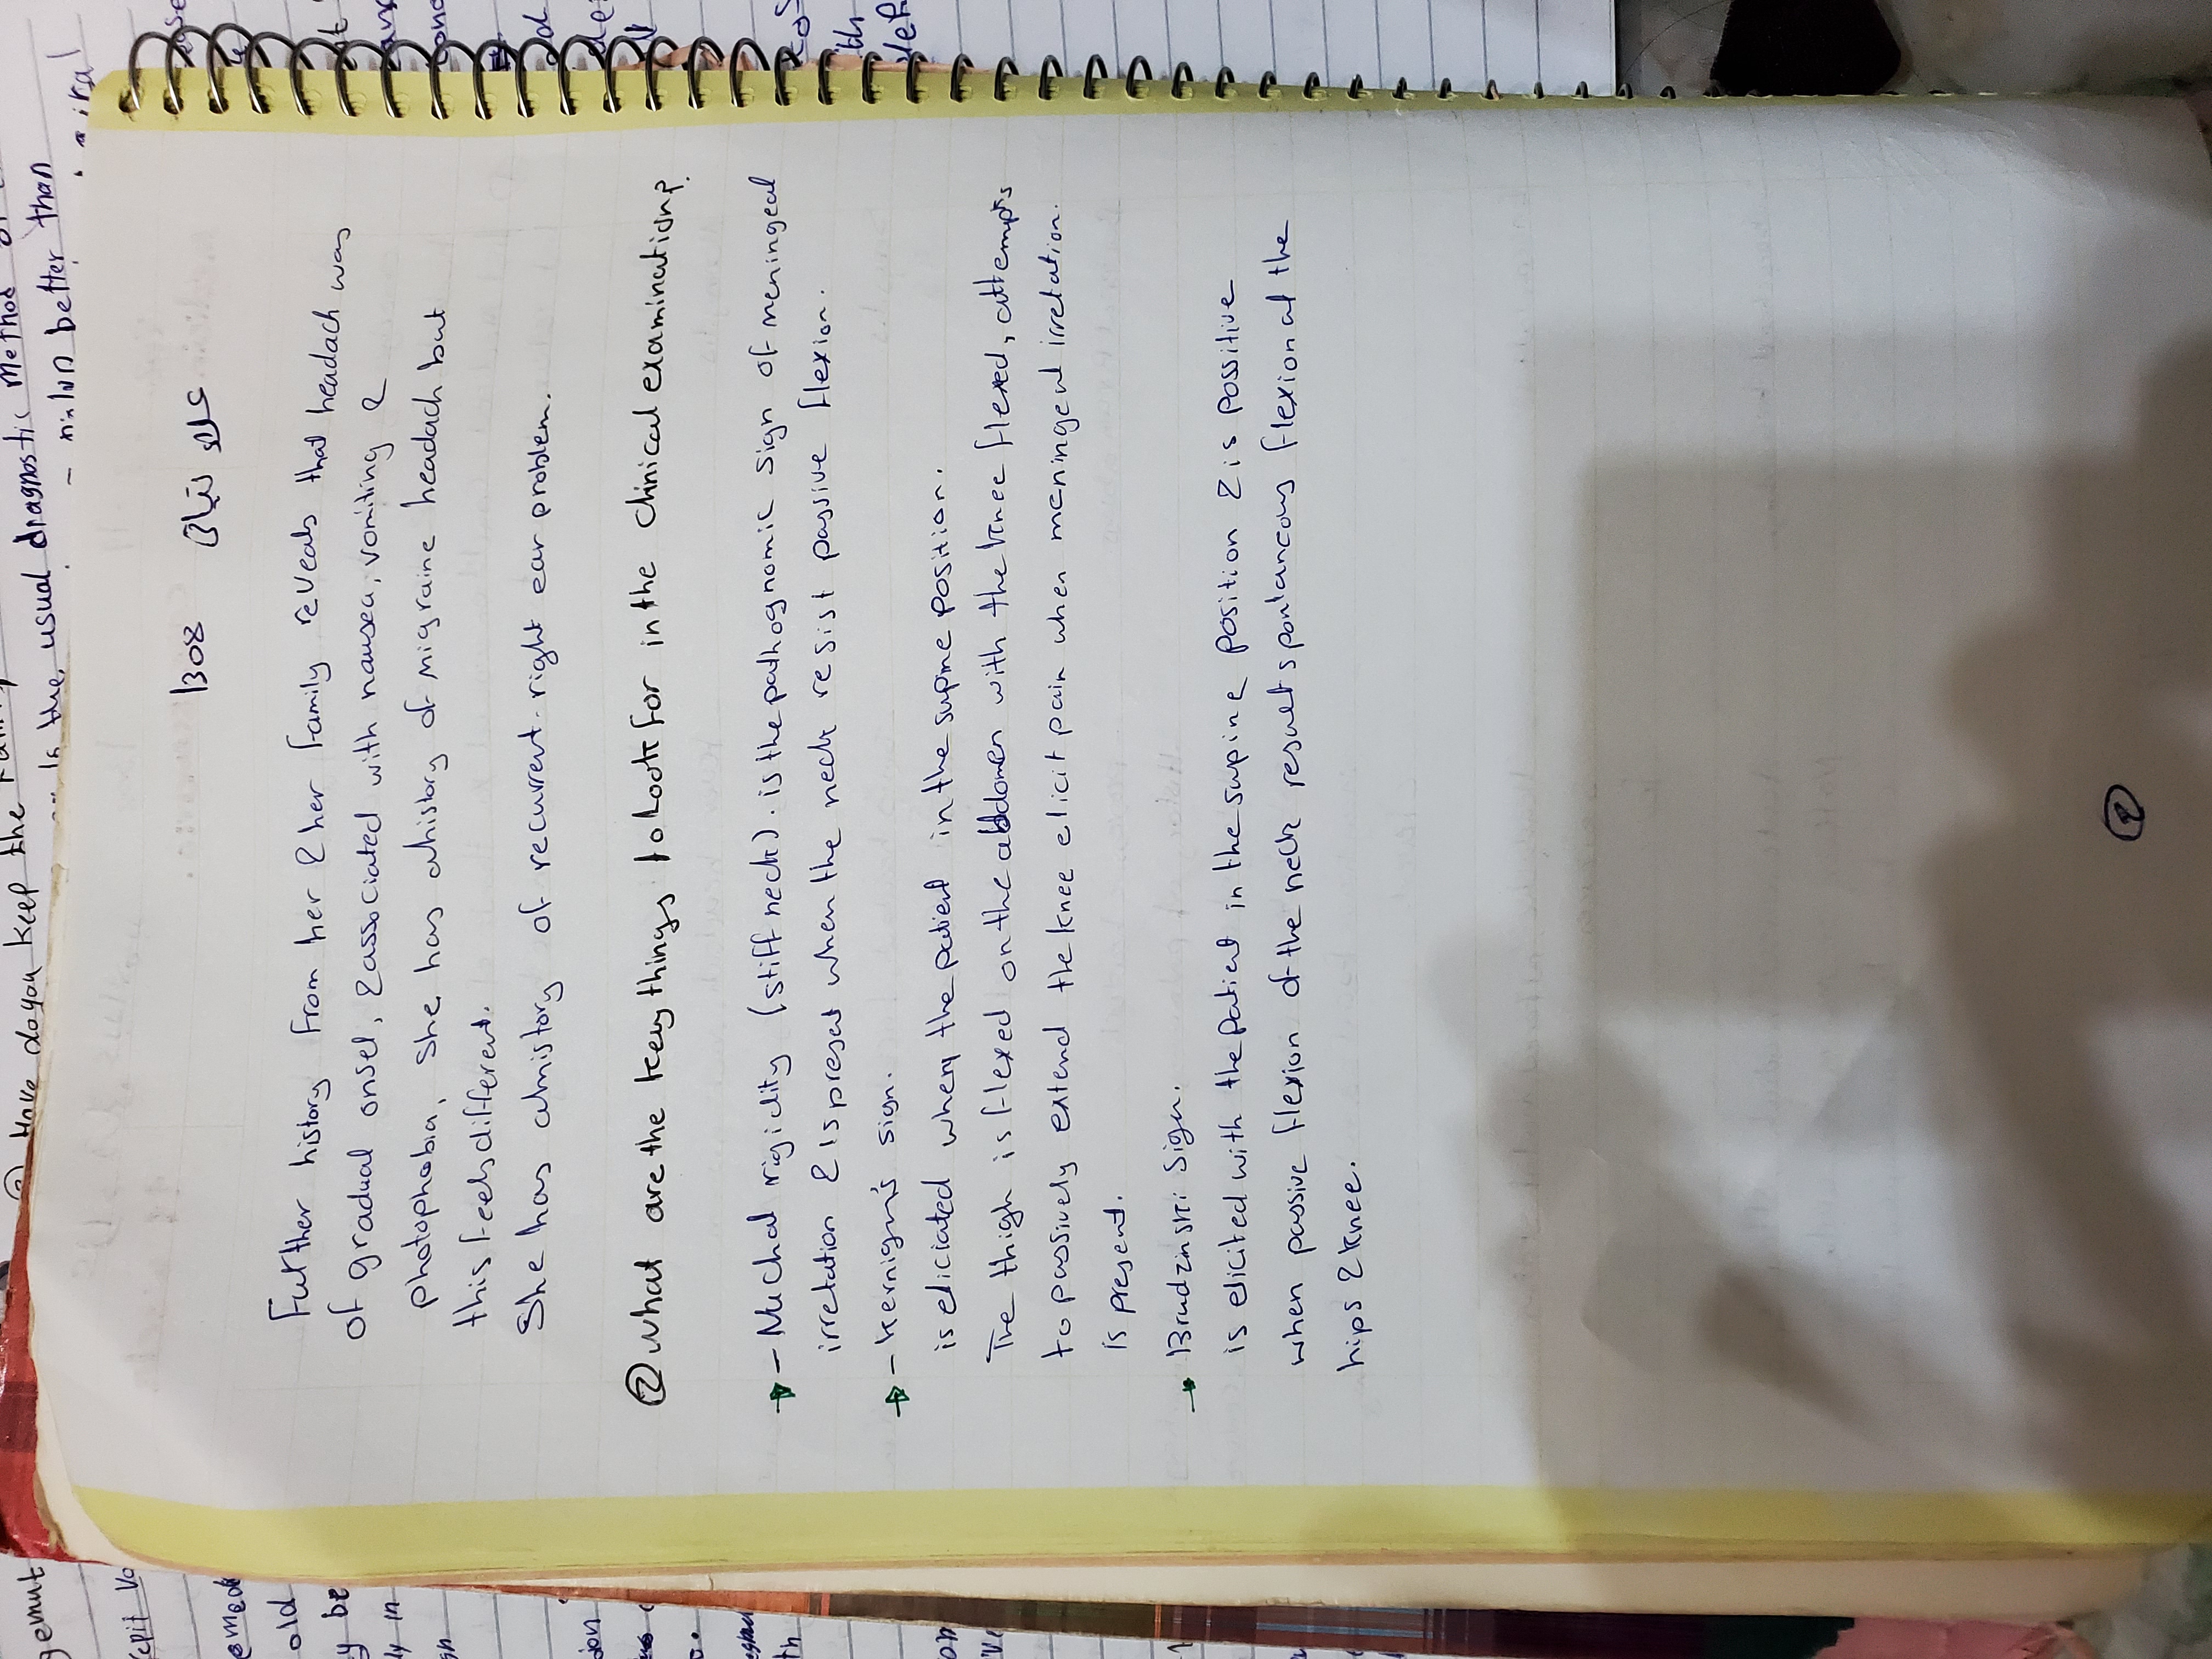 1308 علا نبيل
Further history from her & her family reveals that headach was
of gradual onset, & associated with nausea, vomiting &
photophobia, she has ahistory of migraine headach but
this feels different.
She has ahistory of recurrent right ear problem.
② what are the key things to Look for in the clinical examination?
- Nuchal rigidity (stiff neck). is the pathognomic sign of meningeal
irretation & is preset when the neck resist passive flexion.
- kernign's sign.
is eliciated when the patient in the supine position.
The thigh is flexed on the abdomen with the knee flexed, attempts
to passively extend the knee elicit pain when meningeal irretation.
is present.
Brudzinski sign.
is elicited with the patient in the supine position & is possitive
when passive flexion of the neck result spontaneous flexion at the
hips & knee.
②
How do you keep the
the usual diagnostic method
better than
viral
old